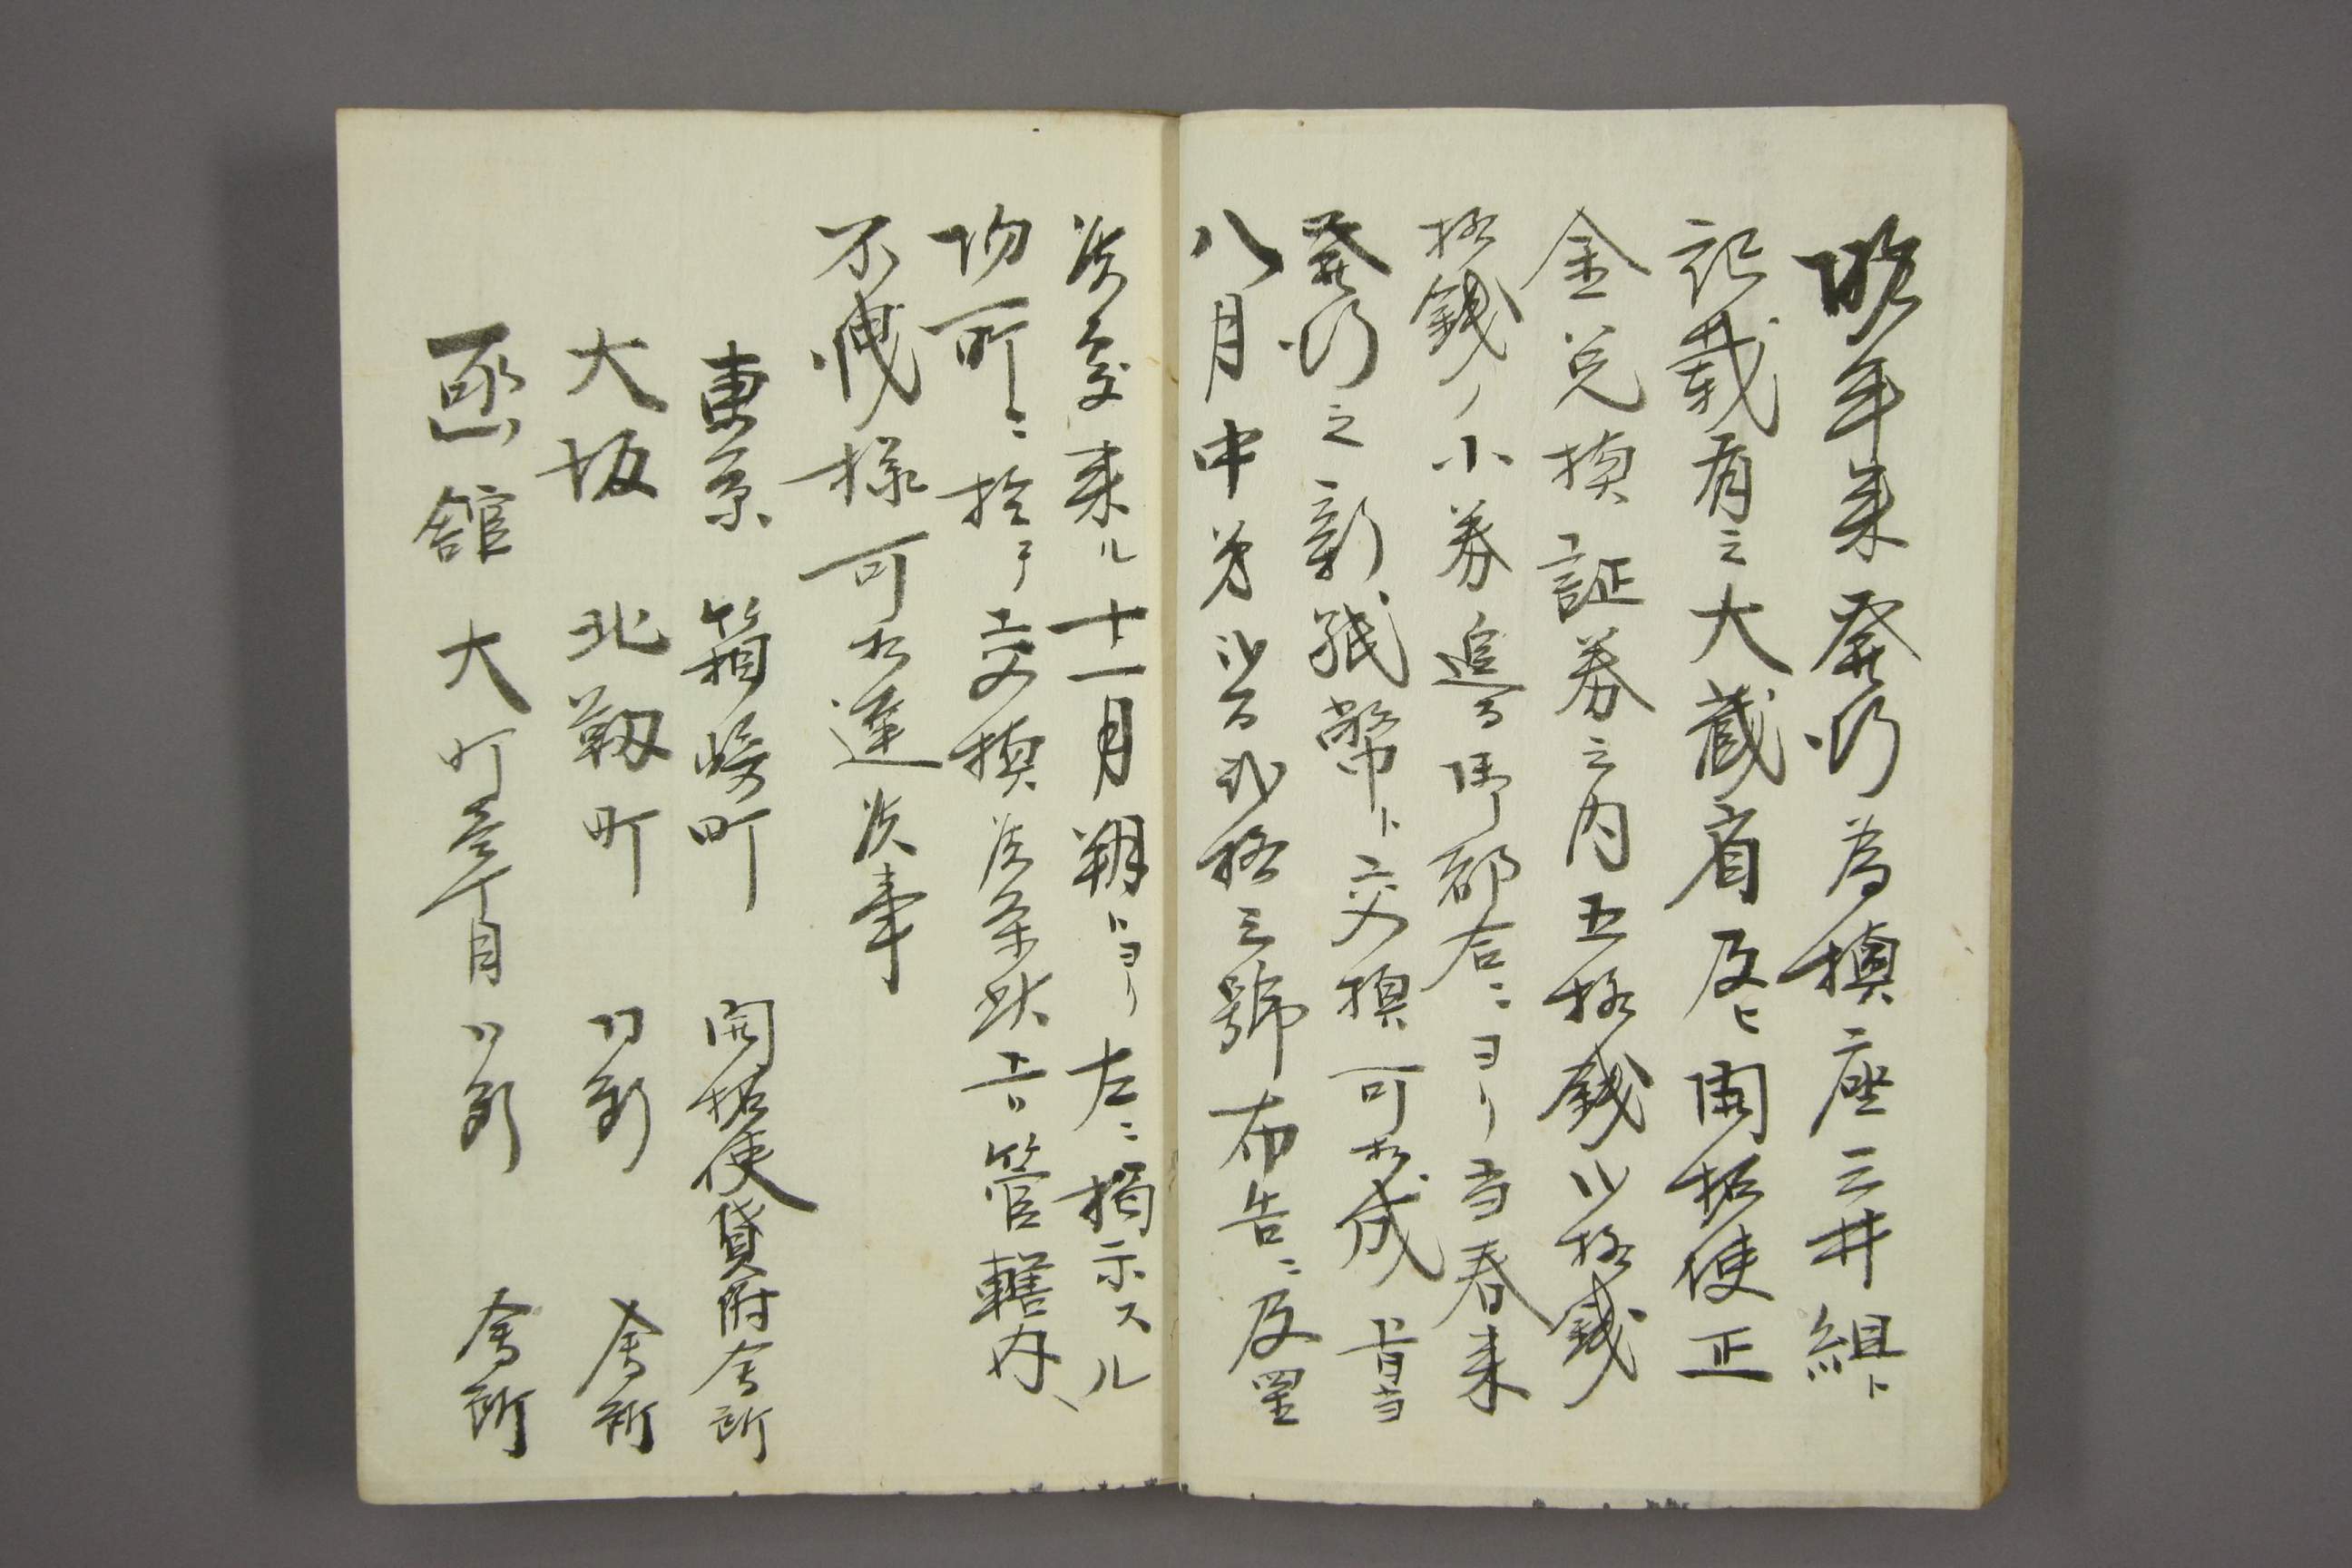 昨年来発行為換座三井組ト
記載有之大蔵省及ヒ開拓使正
金兌換証券之内五拾銭以拾銭
拾銭ノ小券追而御都合ニヨリ当春来
発行之新紙幣ト交換可相成旨当
八月中第貳百貳拾三號布告ニ及置
候處来ル十一月朔日ヨリ左ニ掲示スル
場所ニ於テ交換候条此旨管轄内ヘ
不洩様可相達候事
東京 箱崎町 開拓使貸附会所
大坂 北靱町 同断 会所
函館 大町壱丁目 同断 会所